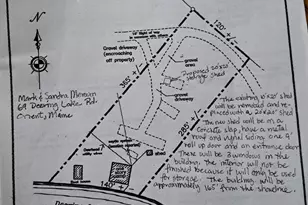 N
Gravel driveway
(encroaching
off property)
gravel
area
120' +/-
Proposed 20'x30'
storage shed
gravel
driveway
385' +/-
285' +/-
Mark & Sandra
69 Deering Lake Rd.
Orient, Maine
shed
140' +/-
The existing 10'x20' shed
will be removed and re-
placed with a 20'x30' shed
The new shed will be on a
concrete slab, have a metal
roof and vinyl siding, one 9'
roll up door and an entrance door
There will be 3 windows on the
building. The interior will not be
finished because it will only be used
for storage. The building will be
approximately 165' from the shoreline.